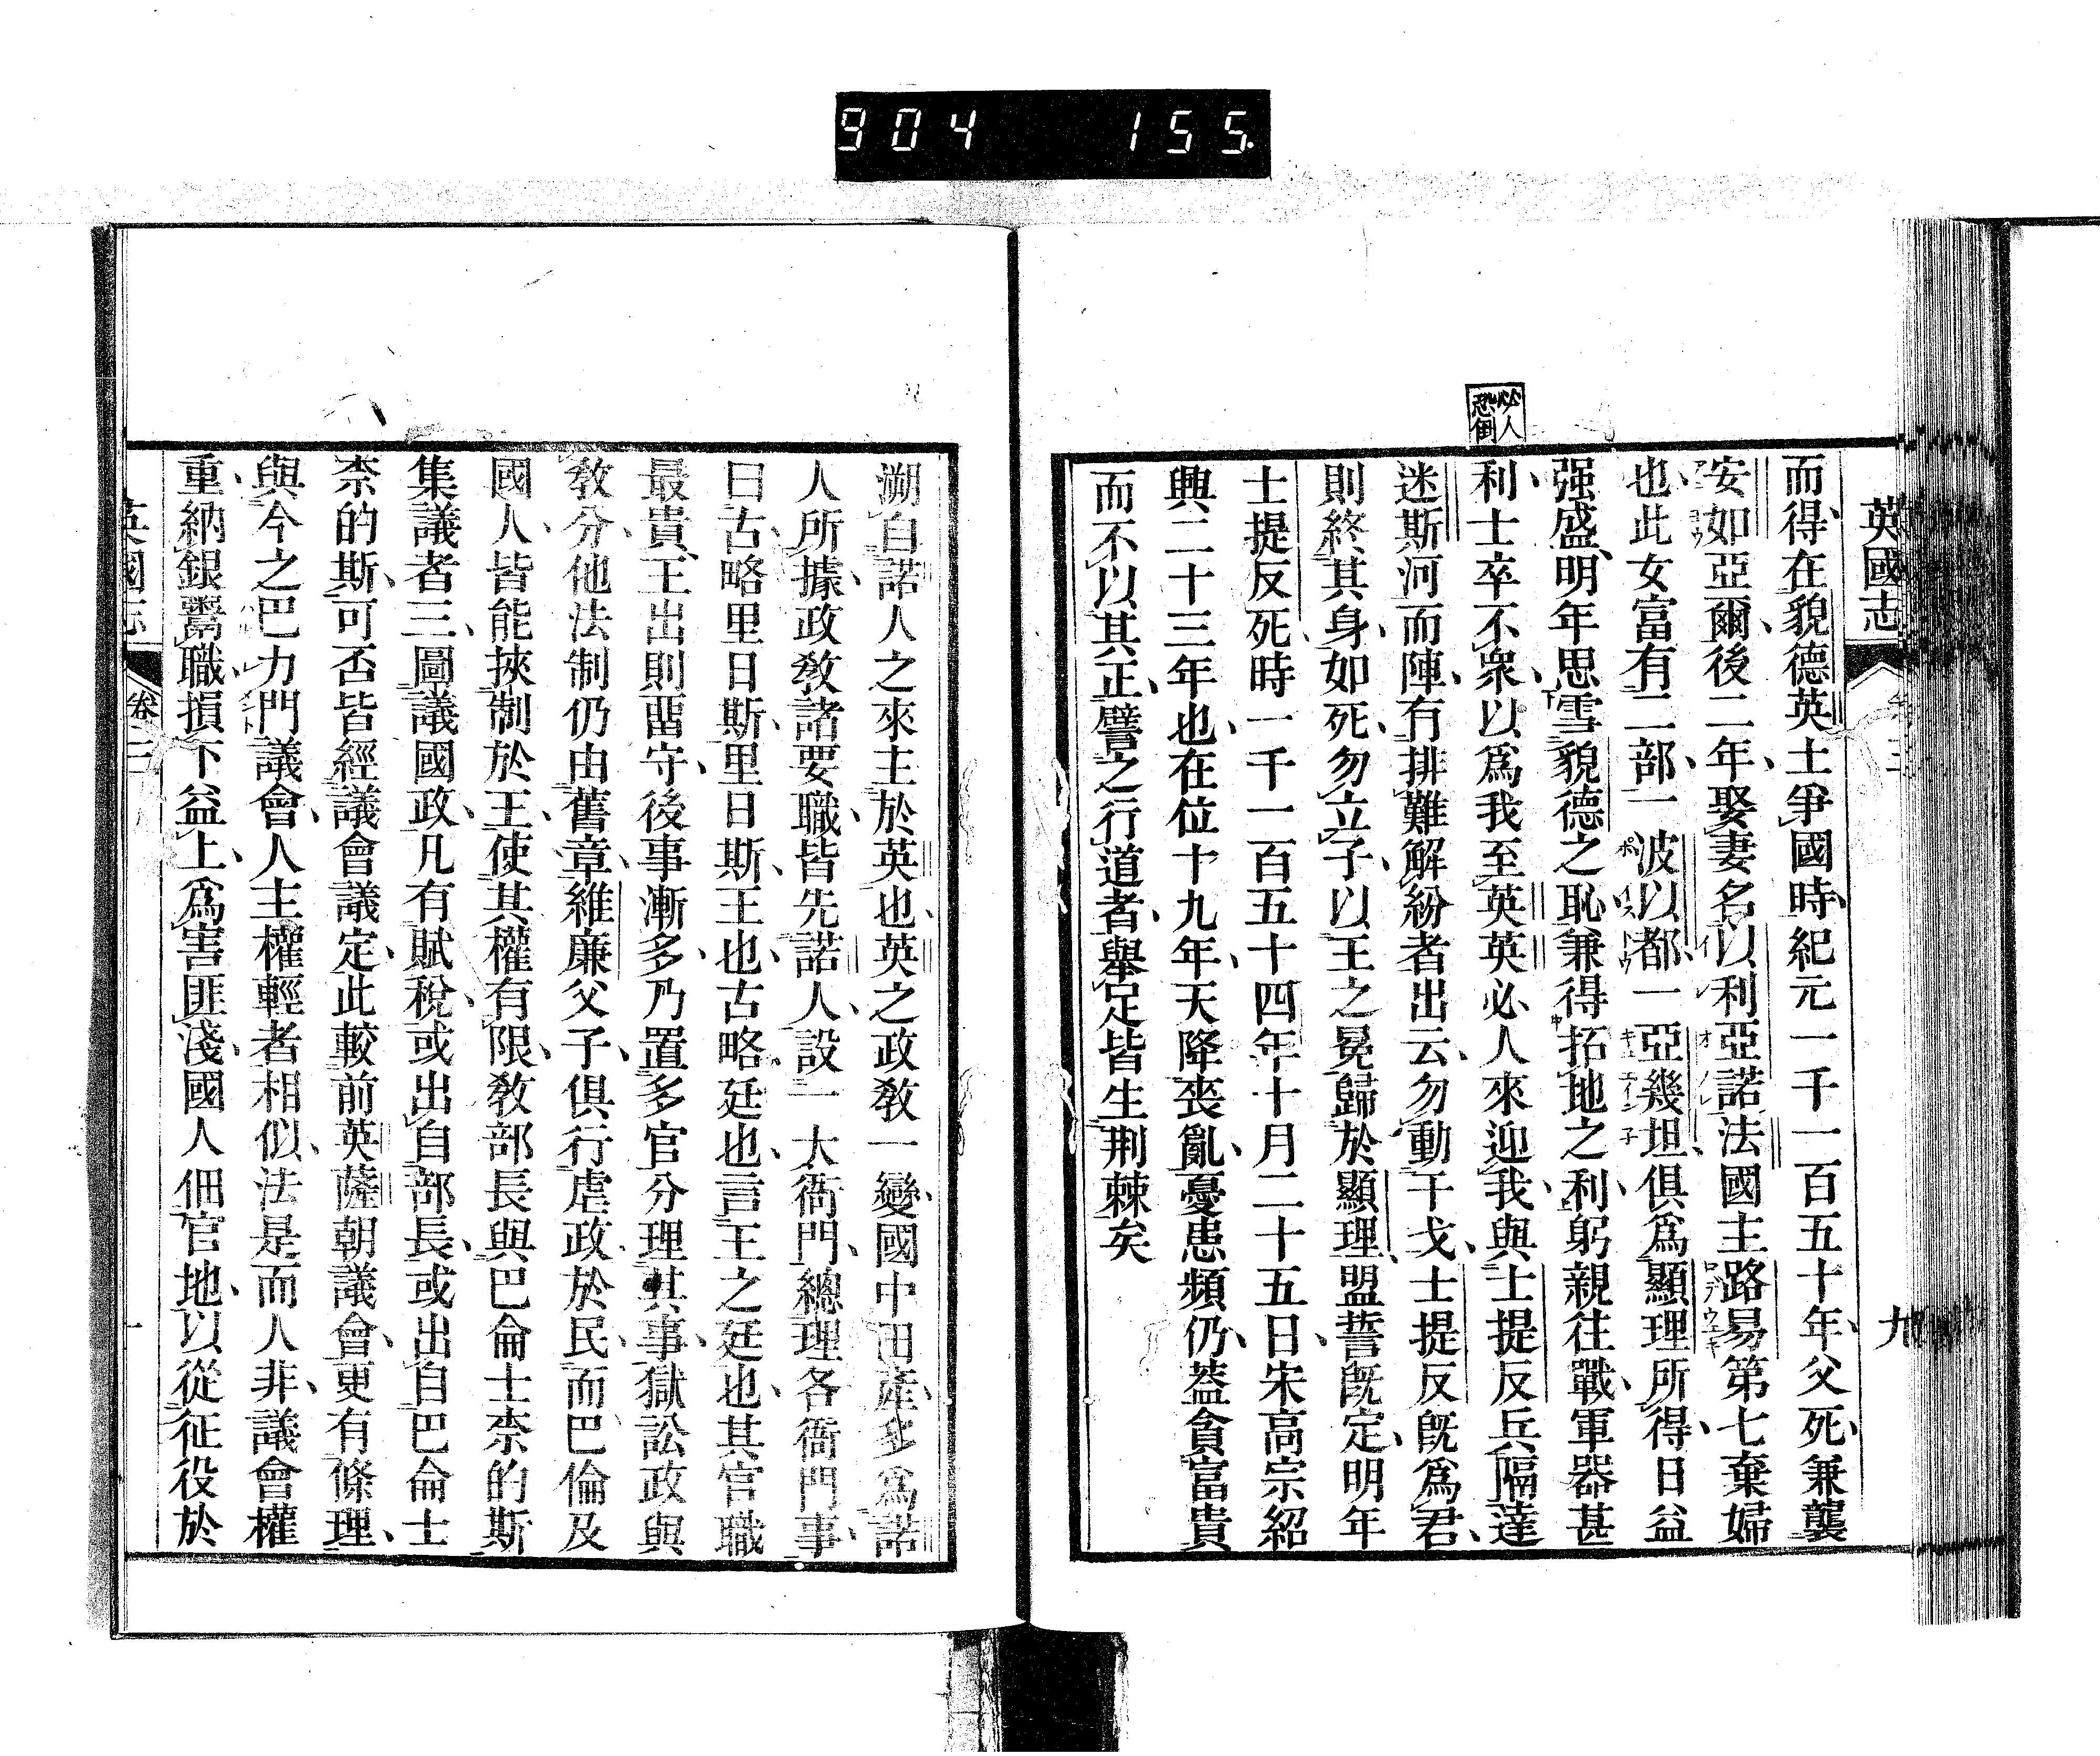 904 155.
英國志
九
必人
恐倒
而得在貌德英士爭國時紀元一千一百五十年父死兼襲
安如亞爾後二年娶妻名以利亞諾法國主路易第七棄婦
也此女富有二部一波以都一亞幾坦俱爲顯理所得日益
强盛明年思雪貌德之恥兼得拓地之利躬親往戰軍器甚
利士卒不衆以爲我至英英必人來迎我與士提反兵隔達
迷斯河而陣有排難解紛者出云勿動干戈士提反旣爲君
則終其身如死勿立子以王之冕歸於顯理盟誓旣定明年
士提反死時一千一百五十四年十月二十五日宋高宗紹
興二十三年也在位十九年天降喪亂憂患頻仍蓋貪富貴
而不以其正譬之行道者舉足皆生荆棘矣
溯自諾人之來主於英也英之政敎一變國中田產多爲諾
人所據政敎諸要職皆先諾人設一大衙門總理各衙門事
曰古略里日斯里日斯王也古略廷也言王之廷也其官職
最貴王出則畱守後事漸多乃置多官分理其事獄訟政與
敎分他法制仍由舊章維廉父子俱行虐政於民而巴倫及
國人皆能挾制於王使其權有限敎部長與巴侖士柰的斯
集議者三圖議國政凡有賦稅或出自部長或出自巴侖士
柰的斯可否皆經議會議定此較前英薩朝議會更有條理
與今之巴力門議會人主權輕者相似法是而人非議會權
重納銀鬻職損下益上爲害匪淺國人佃官地以從征役於
英國志
卷三